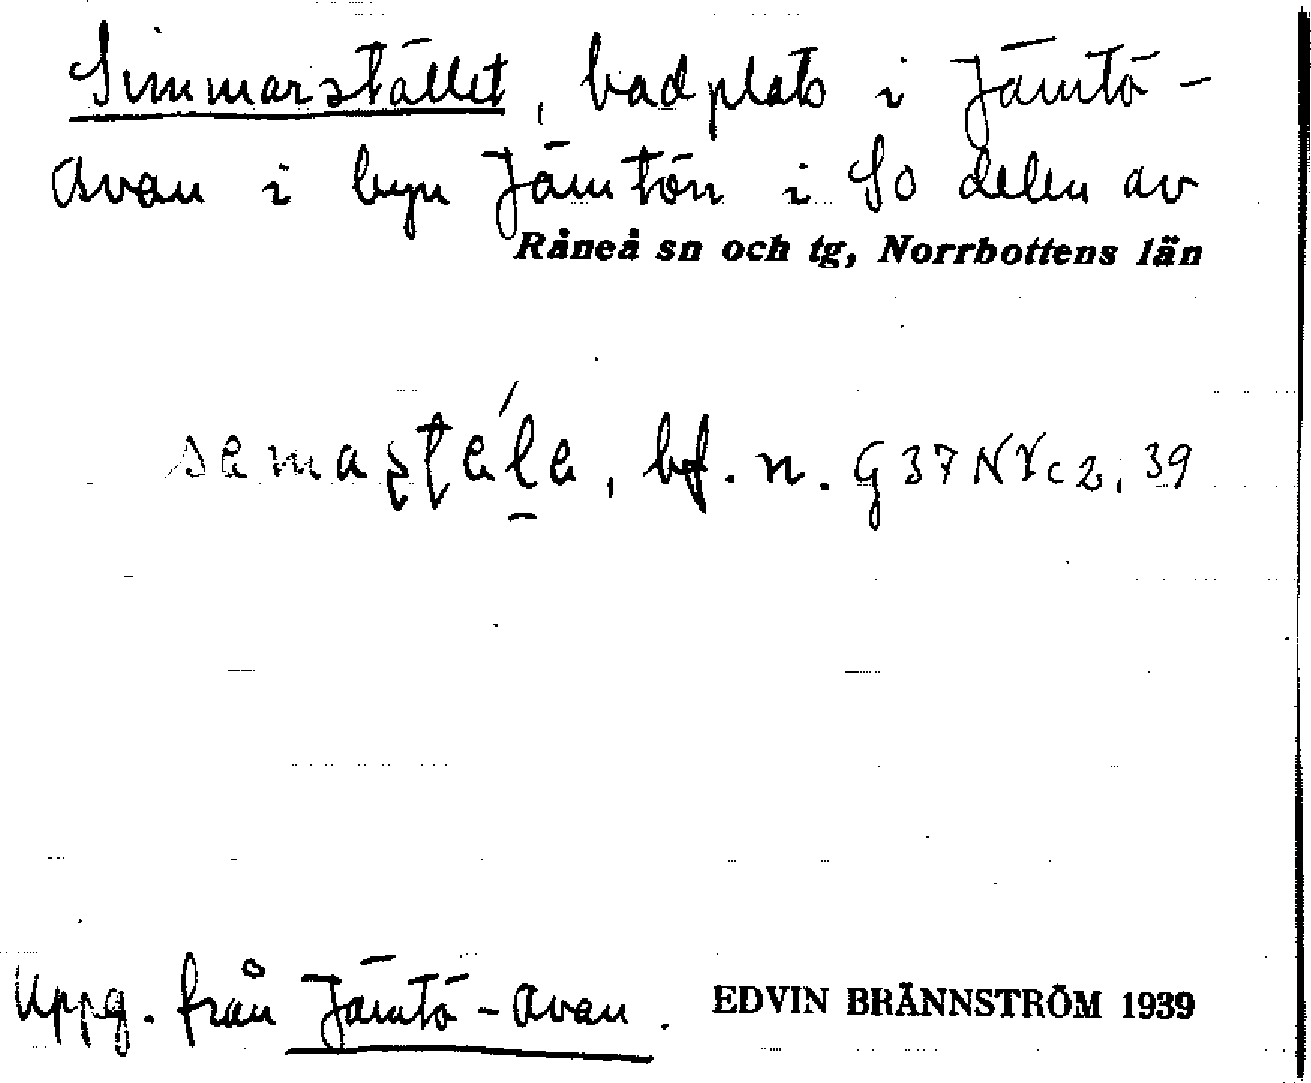 Simmarstället, badplats i Jämtö-
Avan i byn Jämtön i SO delen av
Råneå sn och tg, Norrbottens län
bf. n. G37NVc2, 39
Uppg. från Jämtö-Avan.
EDVIN BRÄNNSTRÖM 1939